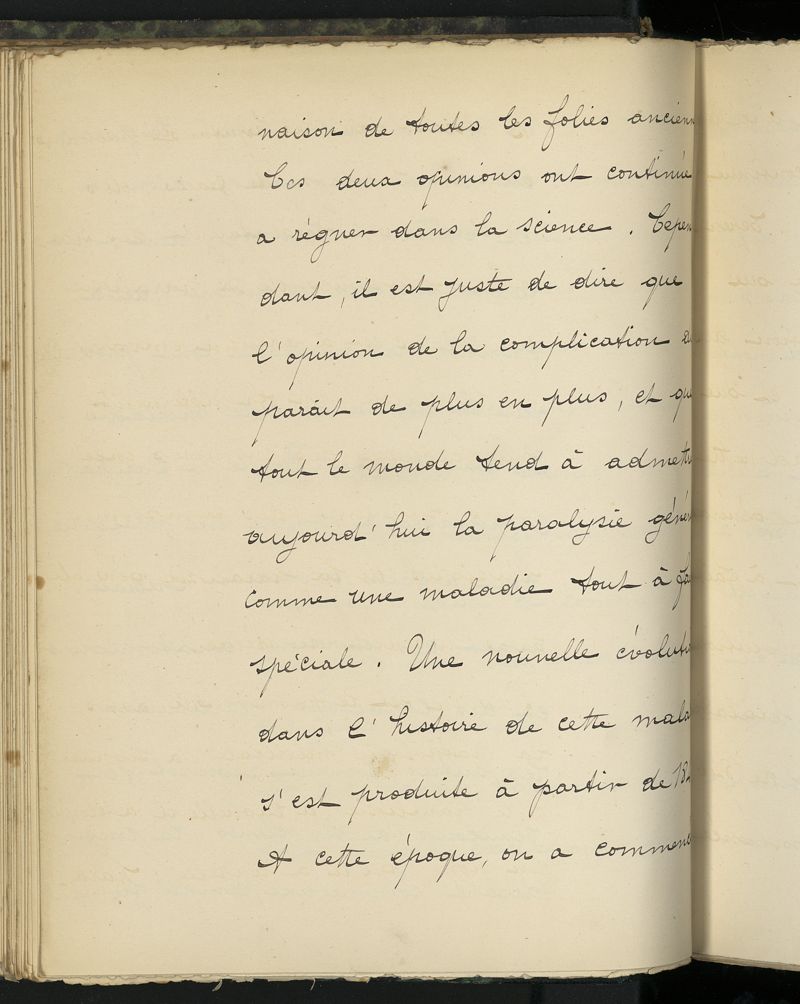 naison de toutes les folies ancienn
Ces deux opinions ont continué
a régner dans la science. Cepen
dant, il est juste de dire que
l'opinion de la complication
parait de plus en plus, et que
tout le monde tend à admett
aujourd'hui la paralysie génér
comme une maladie tout à fa
spéciale. Une nouvelle évoluti
dans l'histoire de cette mala
s'est produite à partir de 18
A cette époque, on a commenc